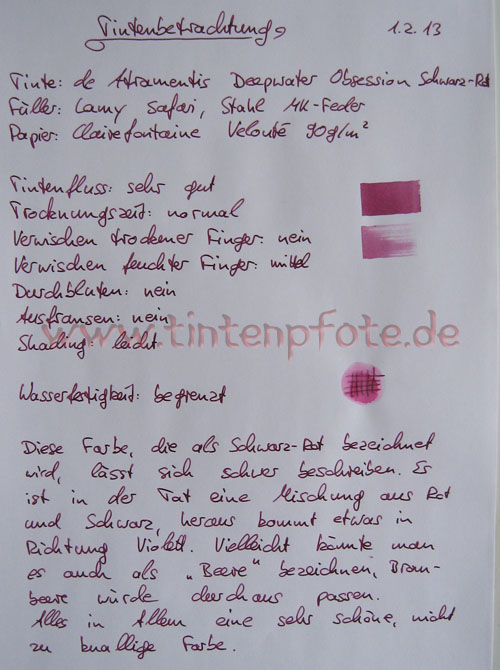 Tintenbetrachtung 1.2.13
Tinte: de Atramentis Deepwater Obsession Schwarz-Rot
Füller: Lamy Safari, Stahl MK-Feder
Papier: Clairefontaine Velouté 90g/m²
Tintenfluss: sehr gut
Trocknungszeit: normal
Verwischen trockener Finger: nein
Verwischen feuchter Finger: mittel
Durchbluten: nein
Ausfransen: nein
www.tintenpfote.de
Shading: leicht
Wasserfestigkeit: begrenzt
Diese Farbe, die als Schwarz-Rot bezeichnet
wird, lässt sich schwer beschreiben. Es
ist in der Tat eine Mischung aus Rot
und Schwarz, heraus kommt etwas in
Richtung Violett. Vielleicht könnte man
es auch als „Beere" bezeichnen, Brom-
beere würde durchaus passen.
Alles in Allem eine sehr schöne, nicht
zu knallige Farbe.